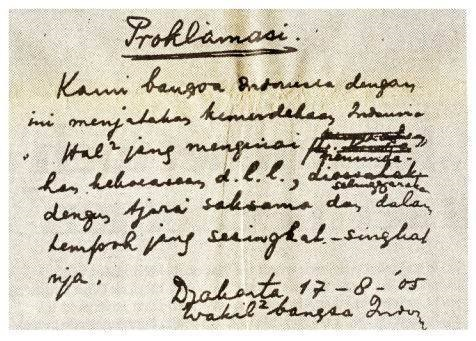 Proklamasi.
Kami bangsa Indonesia dengan
ini menjatakan kemerdekaan Indonesia
. Hal² jang mengenai
peminda-
han kekoeasaan d.l.l., dioesahak
selenggarakan
dengan tjara saksama dan dalam
tempoh jang sesingkat-singkat
nja.
Djakarta 17 - 8 - '05
Wakil² bangsa Indon